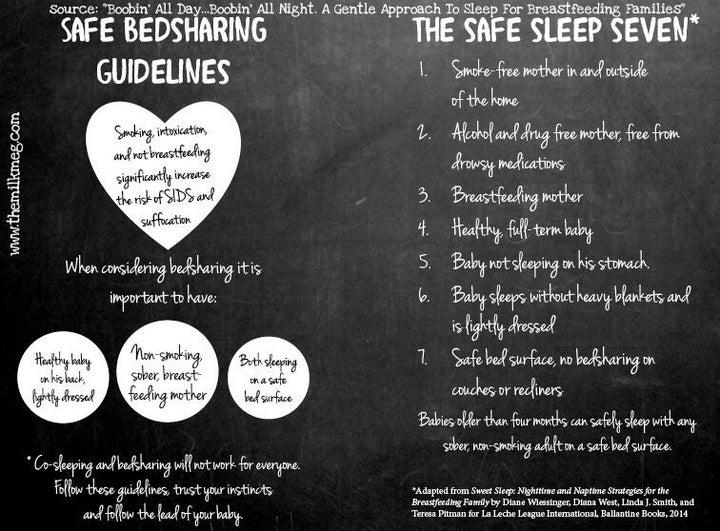 source: "Boobin' All Day...Boobin' All Night. A Gentle Approach To Sleep For Breastfeeding Families"
SAFE BEDSHARING
GUIDELINES
Smoking, intoxication,
and not breastfeeding
significantly increase
the risk of SIDS and
suffocation
www.themilkmeg.com
When considering bedsharing it is
important to have:
Healthy baby
on his back,
lightly dressed
Non-smoking,
sober, breast-
feeding mother
Both sleeping
on a safe
bed surface
* Co-sleeping and bedsharing will not work for everyone.
Follow these guidelines, trust your instincts
and follow the lead of your baby.
THE SAFE SLEEP SEVEN*
1. Smoke-free mother in and outside
of the home
2. Alcohol and drug free mother, free from
drowsy medications
3. Breastfeeding mother
4. Healthy, full-term baby
5. Baby not sleeping on his stomach.
6. Baby sleeps without heavy blankets and
is lightly dressed
7. Safe bed surface, no bedsharing on
couches or recliners
Babies older than four months can safely sleep with any
sober, non-smoking adult on a safe bed surface.
*Adapted from Sweet Sleep: Nighttime and Naptime Strategies for the
Breastfeeding Family by Diane Wiessinger, Diana West, Linda J. Smith, and
Teresa Pitman for La Leche League International, Ballantine Books, 2014